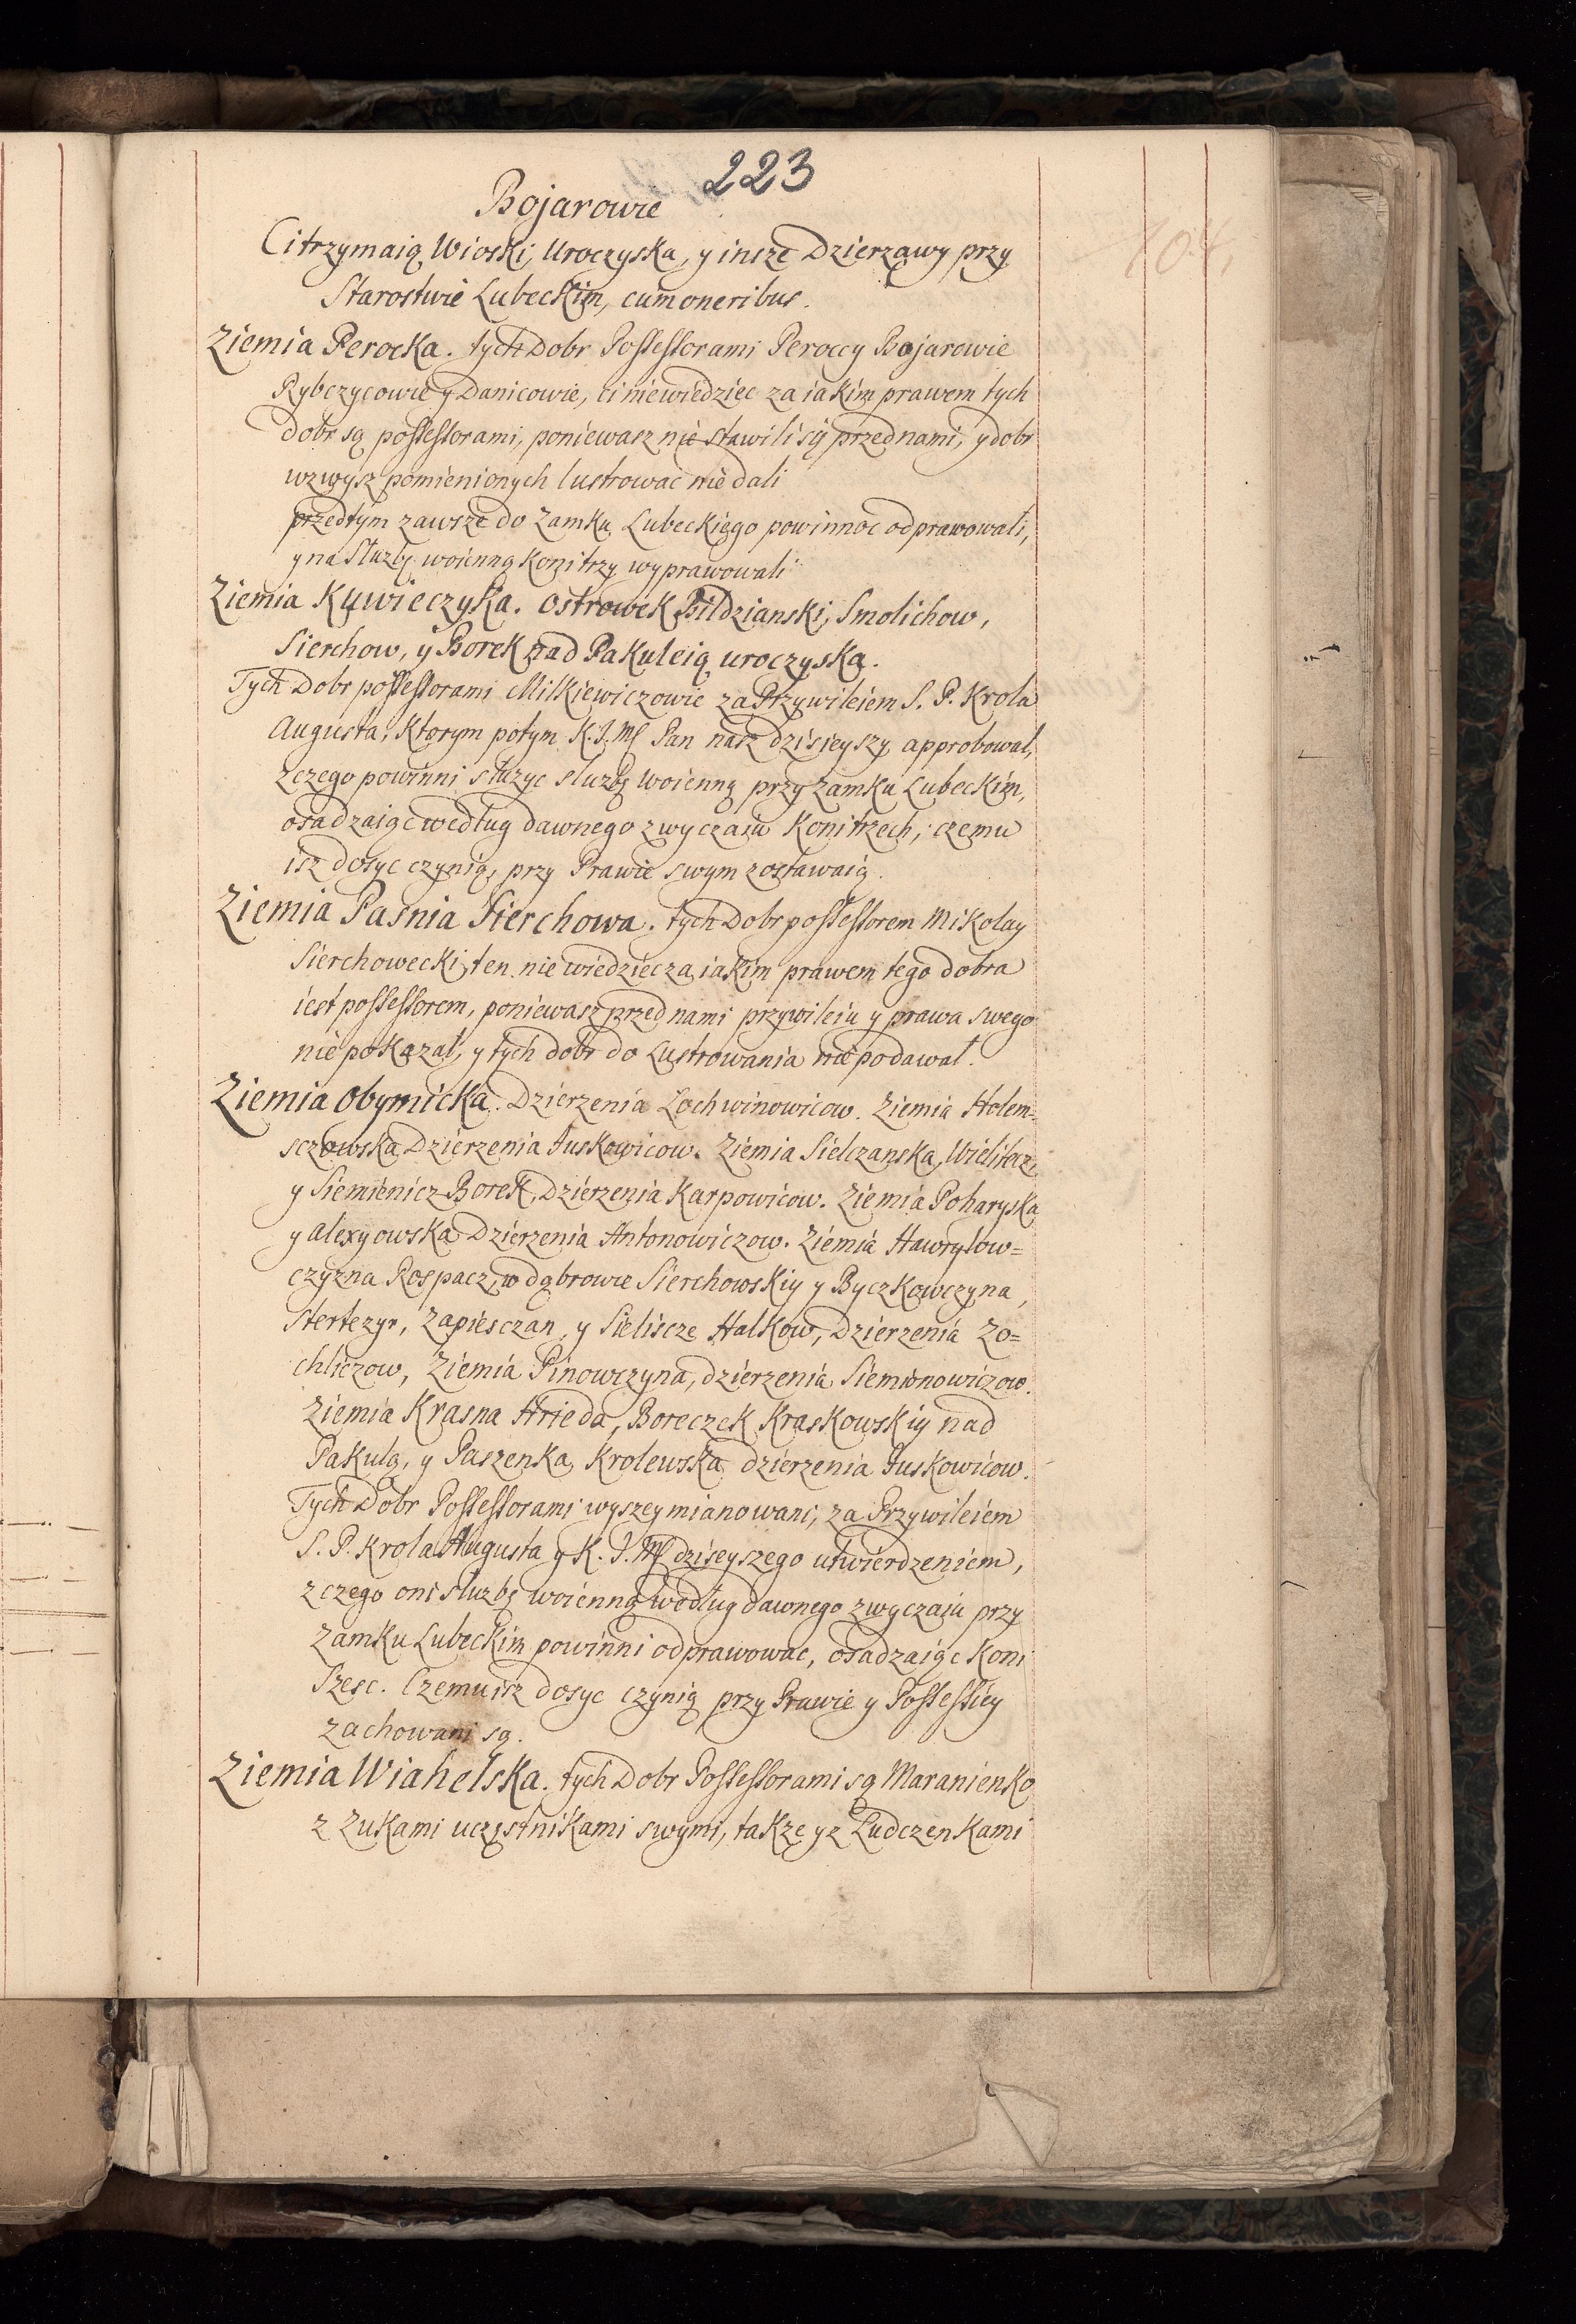 223
104
Bojarowie
Ci trzymaią Wioski, Uroczyska, y insze Dzierzawy przy
Starostwie Lubeckim, cum oneribus.
Ziemia Perocka. tych Dobr Possessorami Peroccy Bojarowie
Rybczycowie y Danicowie, ci niewiedziec za iakim prawem tych
dobr są possessorami, poniewasz nie stawili się przed nami, y dobr
wzwysz pomienionych lustrowac nie dali
przedtym zawsze do Zamku Lubeckiego powinnoc odprawowali,
y na Służbę woienną koni trzy wyprawowali
Ziemia Kywieczyka. Ostrowek Bildzianski, Smolichow,
Sierchow, y Borek nad Pakuleią uroczyska.
Tych Dobr possessorami Milkiewiczowie za Przywileiem S. P. Krola
Augusta, Ktorym potym K. J. Mś Pan nasz dzisieyszy approbował,
z czego powinni słuzyc sluzbę woienną przy Zamku Lubeckim,
osadzaiąc według dawnego zwyczaiu Koni trzech, czemu
isz dosyc czynią, przy Prawie swym zostawaią.
Ziemia Pasnia Sierchowa. tych Dobr possessorem Mikolay
Sierchowecki, ten niewiedziec za iakim prawem tego dobra
iest possessorem, poniewasz przed nami przywileiu y prawa swego
nie pokazał, y tych dobr do Lustrowania nie podawał.
Ziemia Obymicka. Dzierzenia Lochwinowicow. Ziemia Holem=
sczowska Dzierzenia Juskowicow. Ziemia Sielczanska,
y Siemienicz Borek, Dzierzenia Karpowicow. Ziemia Poharyska
y Alexyowska Dzierzenia Antonowiczow. Ziemia Hawrylow=
czyzna Rospacz, w dąbrowie Sierchowskiy y Byczkowczyna,
Stertezyr, Zapiesczan, y Sieliscze Halkow, Dzierzenia Zo=
chliczow, Ziemia Pinowczyna, dzierzenia Siemionowiczow.
Ziemia Krasna Hrieda, Boreczek Kraskowskiy nad
Pakulą, y Paszenka Krolewska dzierzenia Juskowicow.
Tych Dobr Possessorami wyszey mianowani, za Przywileiem
S. P. Krola Augusta y K. J. Mś dziseyszego utwierdzeniem,
z czego oni słuzbę woienną według dawnego zwyczaiu przy
Zamku Lubeckim powinni odprawowac, osadzaiąc Koni
Szesc. Czemu isz dosyc czynią przy Prawie y Possessiey
zachowani są.
Ziemia Wiahelska. tych Dobr Possessorami są Maranienko
z Zukami uczęstnikami swymi, takze y z Ludczenkami